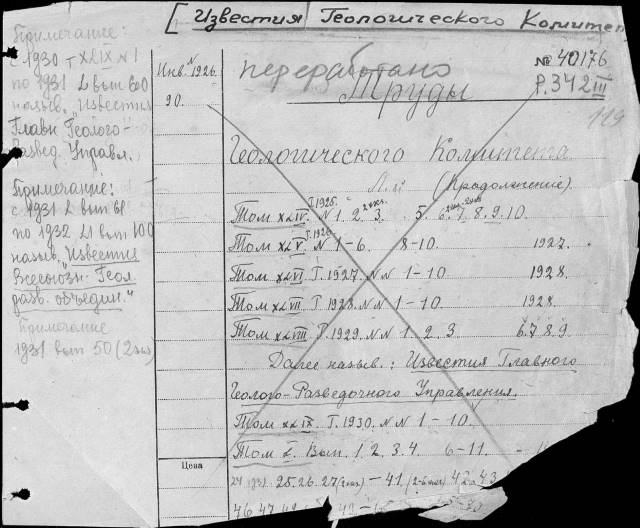 [Известия Геологического Комитет
Примечание:
с 1930 - XLIX N 1
по 1931 L вып 60
назыв. "Известия
Главн Геолого-
Развед. Управл.
Примечание:
с 1931 L вып 61
по 1932 LI вып 100
назыв. "Известия
Всесоюзн. Геол.
разв. объедин."
Примечание
1931 вып 50 (2 экз)
Инв. N 1926.
90.
Цена
переработано
№ 40176
Р.342 III
119
Труды
Геологического Комитета
(Продолжение).
Том XLIV. Г.1925. N 1. 2. 3. 5. 6. 7. 8. 9. 10.
Том XLV. Г.1926 N 1-6. 8-10. 1927.
Том XLVI Г. 1927. N N 1-10. 1928.
Том XLVII Г. 1928. N N 1-10. 1928.
Том XLVIII Г. 1929. N N 1. 2. 3 6.7.8.9.
Далее назыв.: Известия Главного
Геолого-Разведочного Управления.
Том XLIX. Г. 1930. N N 1-10.
Том L. Вып. 1. 2. 3. 4. 6-11.
25. 26. 27 41 42. 43
46. 47.